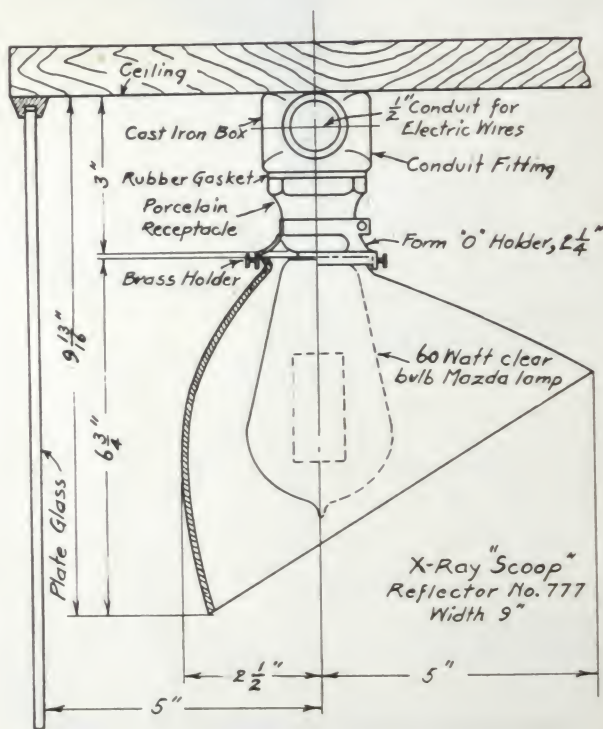 Ceiling
Cast Iron Box
1/2" Conduit for
Electric Wires
Conduit Fitting
Rubber Gasket
Porcelain
Receptacle
Form "O" Holder, 2 1/4"
Brass Holder
3"
9 13/16"
6 3/4"
60 Watt clear
bulb Mazda lamp
Plate Glass
X-Ray "Scoop"
Reflector No. 777
Width 9"
2 1/2"
5"
5"